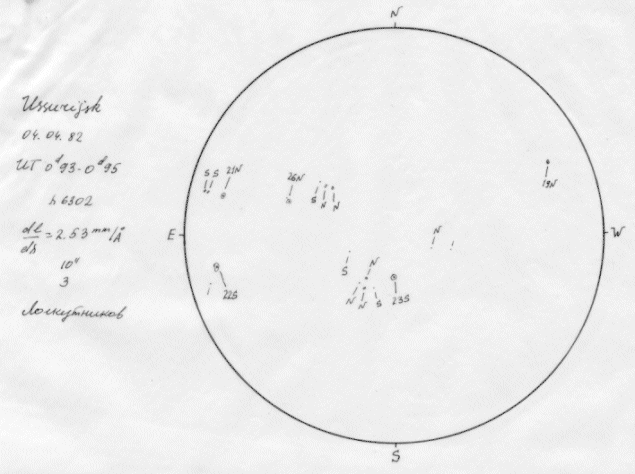 N
Ussurijsk
04.04.82
UT 0ᵈ93-0ᵈ95
λ 6302
dl/dλ = 2.53 mm/Å
10"
3
Лоскутников
S S 21N
26N
S N N
19N
E
W
N
S
N
22S
N N S 23S
S